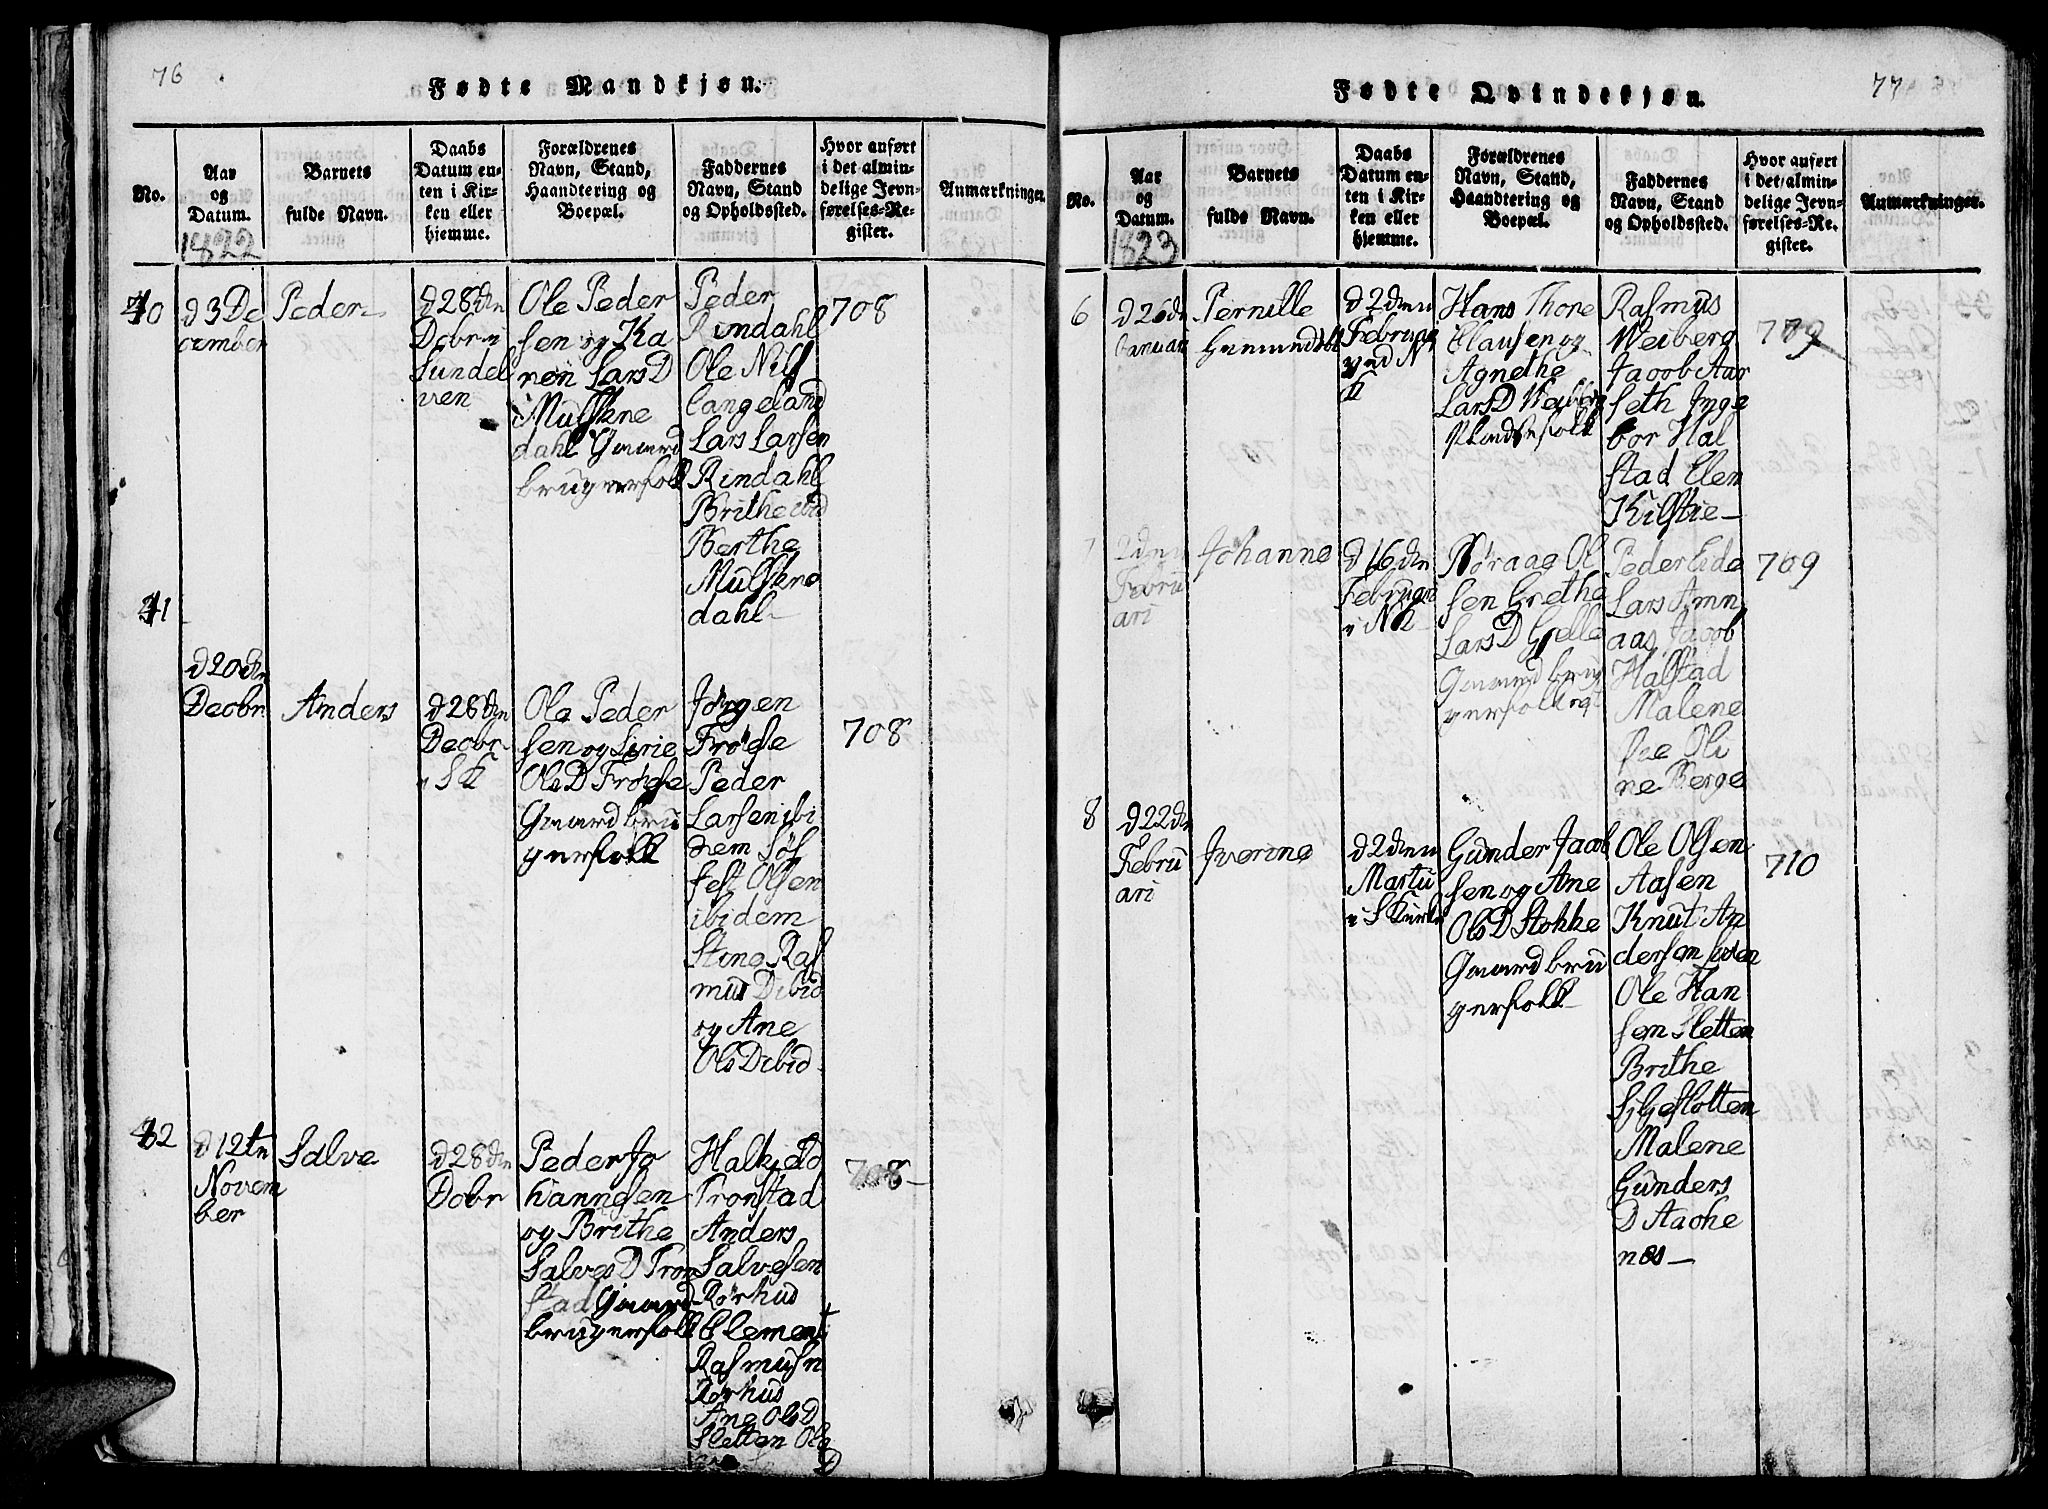 76
Fødte Mandkjøn.
No.
Aar
og
Datum.
1822
Barnets
fulde Navn.
Daabs
Datum en-
ten i Kir-
ken eller
hjemme.
Forældrenes
Navn, Stand,
Haandtering og
Boepæl.
Faddernes
Navn, Stand
og Opholdssted.
Hvor anført
i det almin-
delige Jevn-
førelses-Re-
gister.
Anmærkninger.
40
d 3 De
cember
Peder
d 28 dn
Dcbr i
Sundel
ven
Ole Peder
sen og Ka
ren Lars D
Mulstene
dahl Gaard
brugerfolk
Peder
Rindahl
Ole Nils
Langeland
Lars Larsen
Rindahl
Brithe ibid
Berthe
Mulstene
dahl
708
41
d 20 dn
Decbr
Anders
d 28 dn
Decbr
i SK
Ole Peder
sen og Sirie
Ols D Frøise
Gaardbru
gerfolk
Jørgen
Frøise
Peder
Larsen ibi
dem
Olsen
ibidem
Stine Ras
mus D ibid
og Ane
Ols D ibid
708
42
d 12 tn
Novem
ber
Salve
d 28 dn
Dcbr
Peder Jo
hannesen
og Brithe
Salves D Tron
stad Gaard
brugerfolk
Halkield
Tronstad
Anders
Salvesen
Rørhus
Clement
Rasmusn
Rørhus
Ane Ols D
Sletten Ole
D
708
77
Fødte Qvindekjøn.
No.
Aar
og
Datum.
1823
Barnets
fulde Navn.
Daabs
Datum en-
ten i Kir-
ken eller
hjemme.
Forældrenes
Navn, Stand,
Haandtering og
Boepæl.
Faddernes
Navn, Stand
og Opholdssted.
Hvor anført
i det almin-
delige Jevn-
førelses-Re-
gister.
Anmærkninger.
6
d 26 dn
Januari
Pernille
d 2 den
Februar
K
Hans Thore
Clausen og
Agnethe
Lars D Weiberg
Pladsefolk
Rasmus
Weiberg
Jacob Aar
seth Inge
bor Hal
stad Elen
Kilstie
709
7
2 den
Febru
ari
Johanne
d 16 dn
Februari
i NK
Nøraae Ol
sen Grethe
Lars D Gjelle
Gaardbru
gerfolk
Peder Eide
Lars Amn
aas Jacob
Halstad
Malene
Øie Oli
ne Berge
709
8
d 22 dn
Febru
ari
Iverine
d 2 den
Marti
i S Kirke
Gunder Jacob
sen og Ane
Ols D Stokke
Gaardbru
gerfolk
Ole Olsen
Aasen
Knut An
dersen
Ole Han
sen Sletten
Brithe
Sletten
Malene
Gunders
D Aache
nes
710